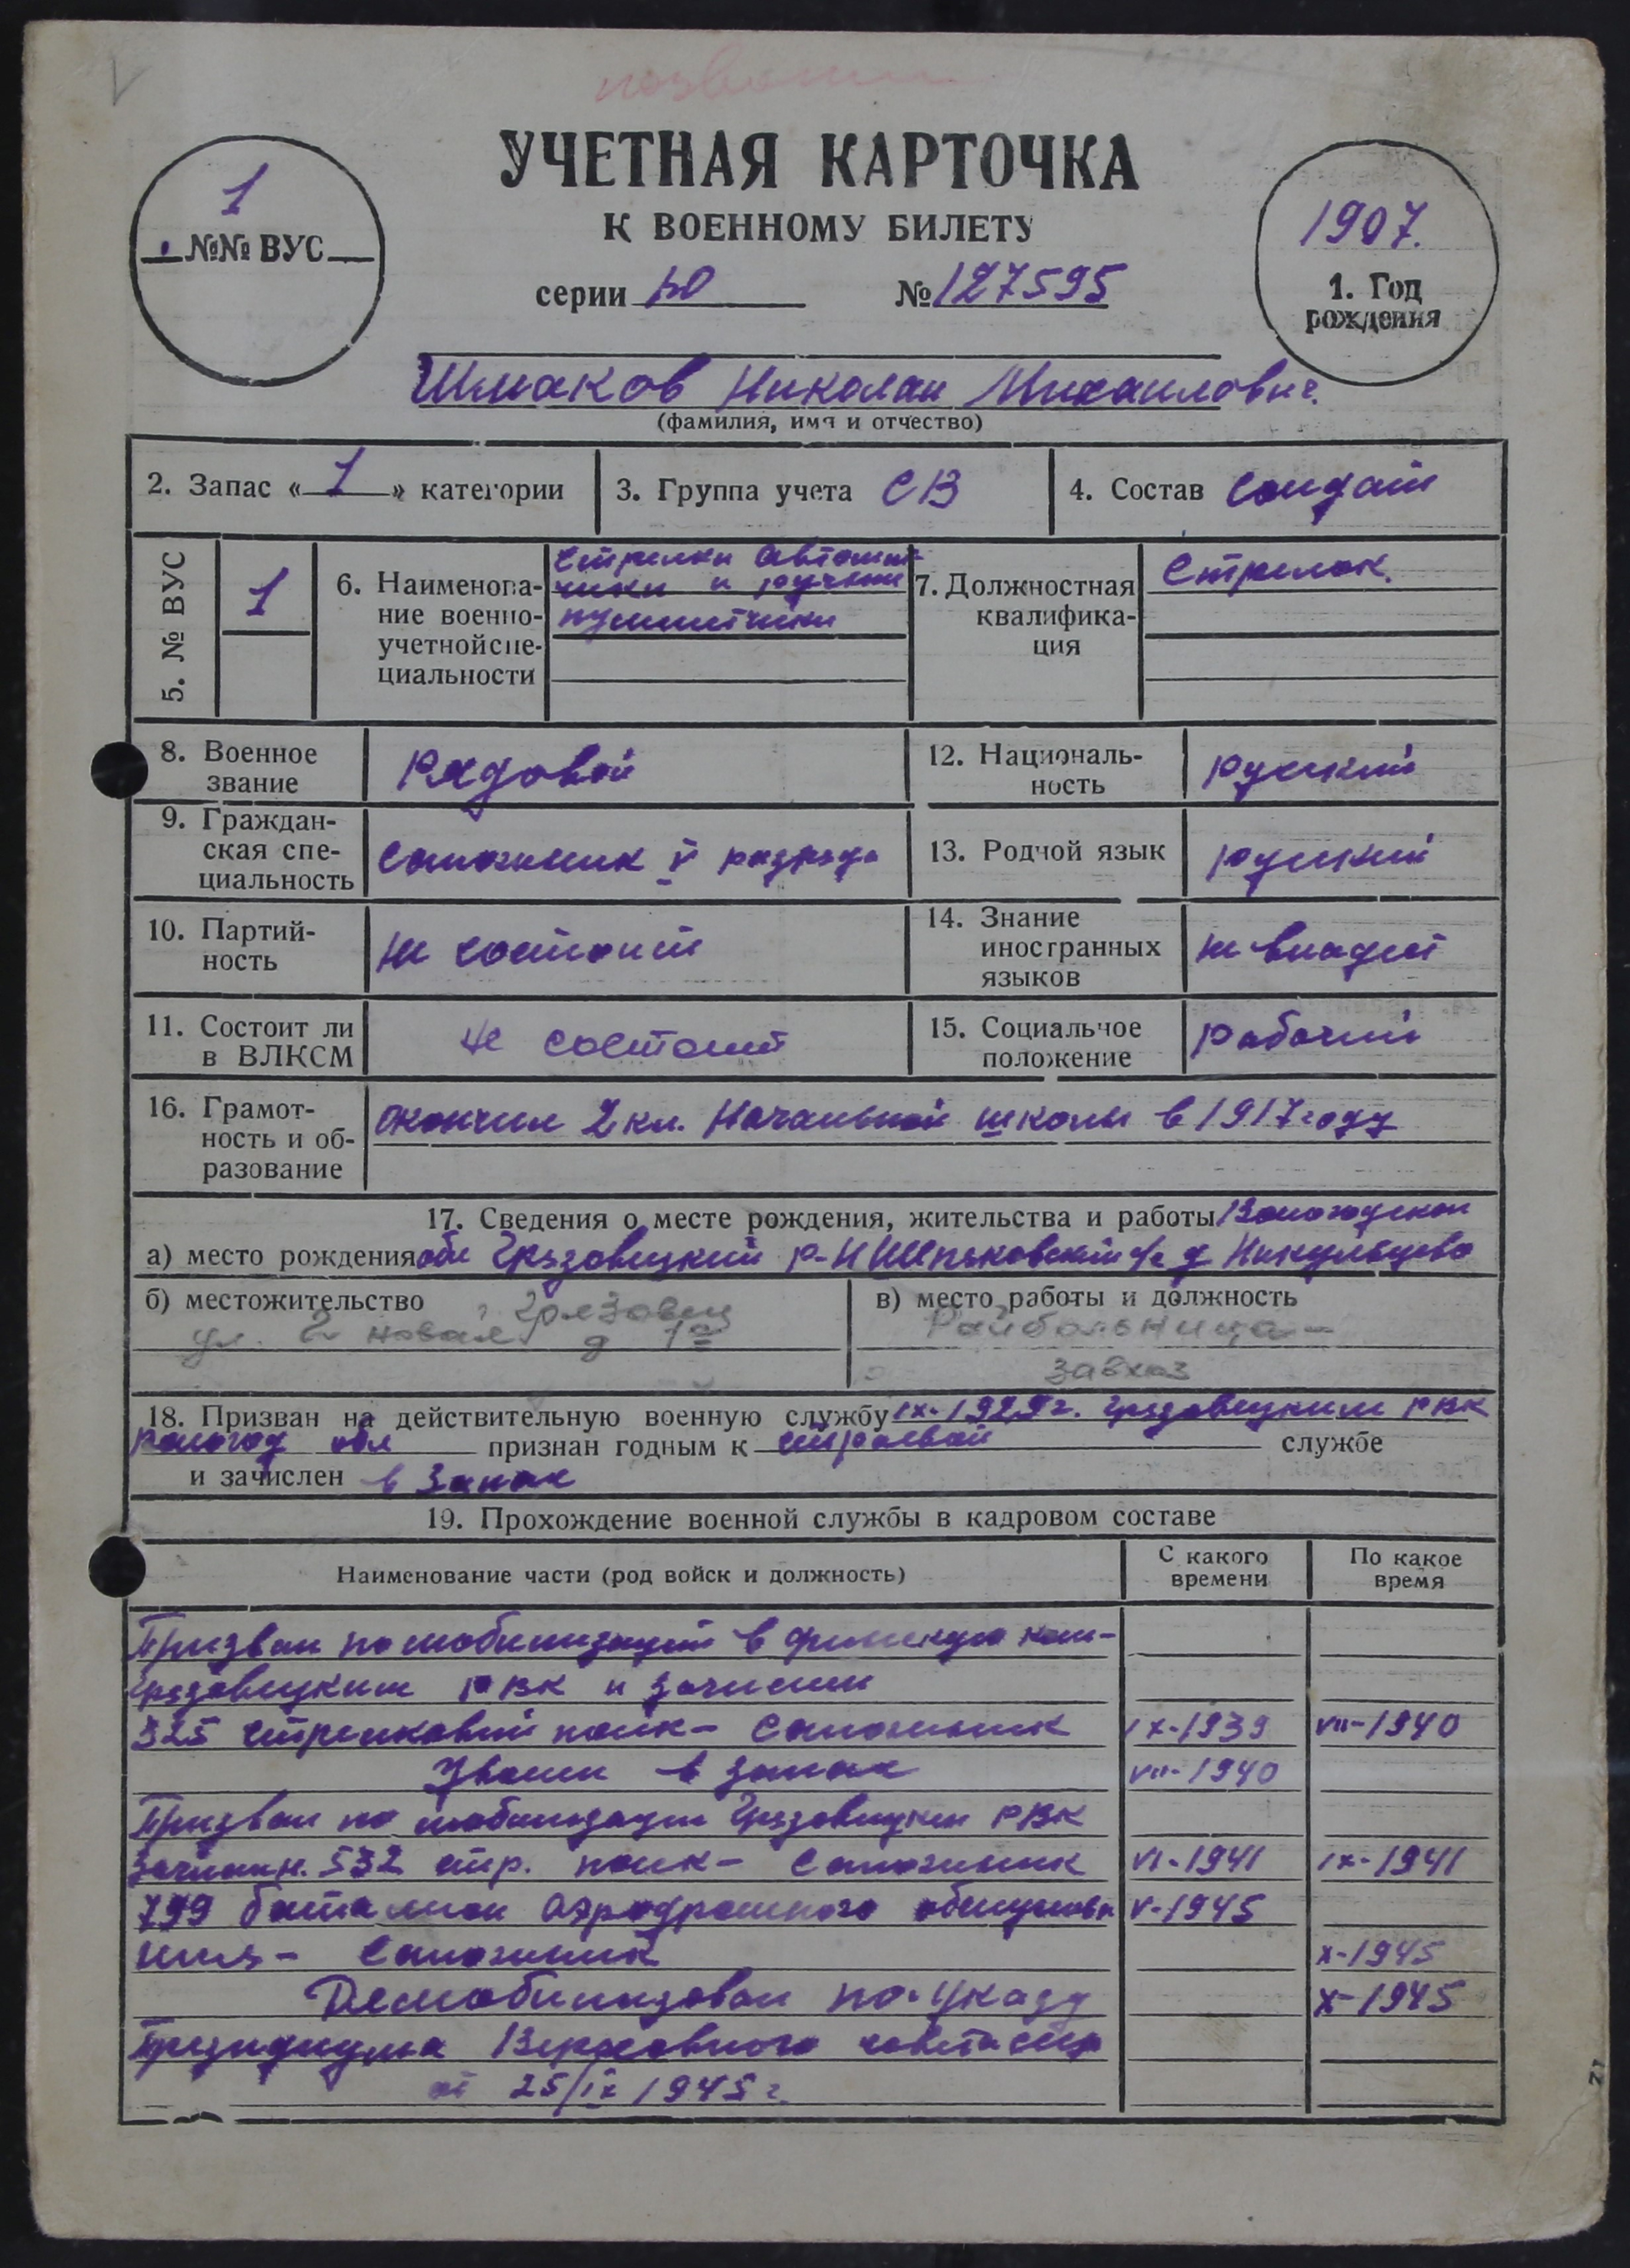 УЧЕТНАЯ КАРТОЧКА
К ВОЕННОМУ БИЛЕТУ
1
№№ ВУС
серии № 127595
1907.
1. Год
рождения
Шмаков Николай Михайлович.
(фамилия, имя и отчество)
2. Запас « 1 » категории
3. Группа учета СВ
4. Состав Солдат
5. № ВУС
1
6. Наименова-
ние военно-
учетной спе-
циальности
Стрелки автомат-
чики и ручные
пулеметчики
7. Должностная
квалифика-
ция
Стрелок.
8. Военное
звание
Рядовой
12. Националь-
ность
русский
9. Граждан-
ская спе-
циальность
Сапожник V разряда
13. Родной язык
русский
10. Партий-
ность
не состоит
14. Знание
иностранных
языков
не владеет
11. Состоит ли
в ВЛКСМ
не состоит
15. Социальное
положение
рабочий
16. Грамот-
ность и об-
разование
окончил 2 кл. Начальной школы в 1917 году
17. Сведения о месте рождения, жительства и работы Вологодской
а) место рождения обл Грязовецкий р-н с/с д Никульцево
б) местожительство г. Грязовец
ул. 2 новая д 1а
в) место работы и должность
Райбольница -
завхоз
18. Призван на действительную военную службу IX-1929г. Грязовецким РВК
Вологод обл признан годным к строевой службе
и зачислен в Запас
19. Прохождение военной службы в кадровом составе
Наименование части (род войск и должность)
С какого
времени
По какое
время
Призван по мобилизации в финскую кам-
Грязовецким РВК и зачислен
325 стрелковый полк - Сапожник IX-1939 VII-1940
Уволен в запас VII-1940
Призван по мобилизации Грязовецким РВК
Зачислен. 532 стр. полк - Сапожник VI-1941 IX-1941
799 батальон Аэродромного обслужива V-1945
ния - Сапожник X-1945
Демобилизован по Указу X-1945
Президиума Верховного совета ссср
от 25/IX 1945 г.